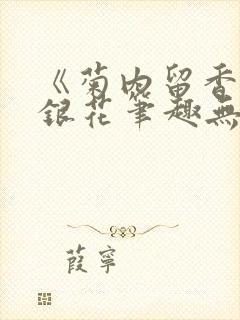 《菊内留香
銀花筆趣無
葭寧